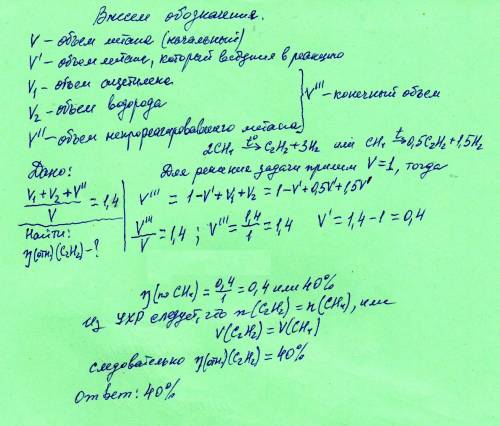 Введем обозначения.
V - объем метана (начальный)
V' - объем метана, который вступил в реакцию
V₁ - объем ацетилена
V₂ - объем водорода
V'' - объем непрореагировавшего метана
V''' - конечный объем
2CH₄ →t° C₂H₂+3H₂ или CH₄ →t 0,5C₂H₂+1,5H₂
Дано:
(V₁+V₂+V'')/V = 1,4
Найти:
η(отн)(C₂H₂)-?
Для решение задачи примем V=1, тогда
V''' = 1-V'+V₁+V₂ = 1-V'+0,5V'+1,5V'
V'''/V = 1,4 ; V''' = 1,4/1 = 1,4 V' = 1,4-1 = 0,4
η(по CH₄) = 0,4/1 = 0,4 или 40%
Из УХР следует, что n(C₂H₂) = n(CH₄), или
V(C₂H₂) = V(CH₄)
следовательно η(отн)(C₂H₂) = 40%
Ответ: 40%